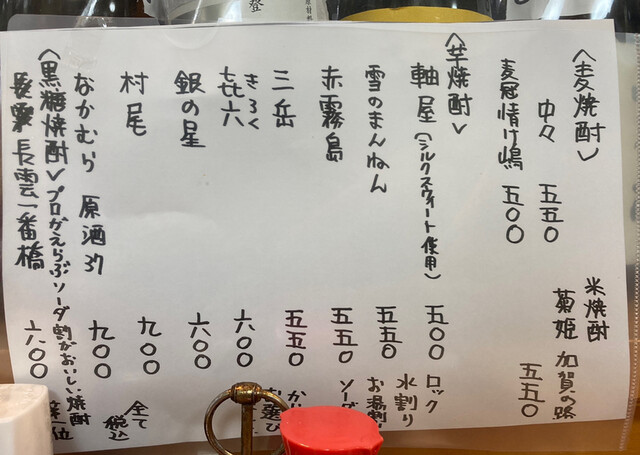 〈麦焼酎〉
中々 五五〇
麦冠情け嶋 五〇〇
米焼酎
菊姫 加賀の露 五五〇
〈芋焼酎〉
軸屋(シルクスウィート使用) 五〇〇
雪のまんねん 五五〇
赤霧島 五五〇
三岳 五五〇
㐂六 きろく 六〇〇
銀の星 六〇〇
村尾 九〇〇
なかむら 原酒37 九〇〇
〈黒糖焼酎〉プロがえらぶソーダ割がおいしい焼酎 第一位
長雲 長雲一番橋 六〇〇
ロック
水割り
お湯割り
ソーダ
全て
税込